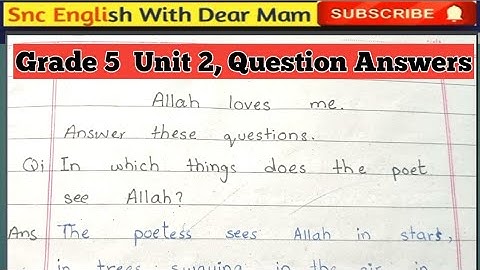 Snc English With Dear Mam SUBSCRIBE
Grade 5 Unit 2, Question Answers
Allah loves me.
Answer these questions.
Qi In which things does the poet
see Allah?
Ans The poetess sees Allah in stars,
in trees swaying in the air, in